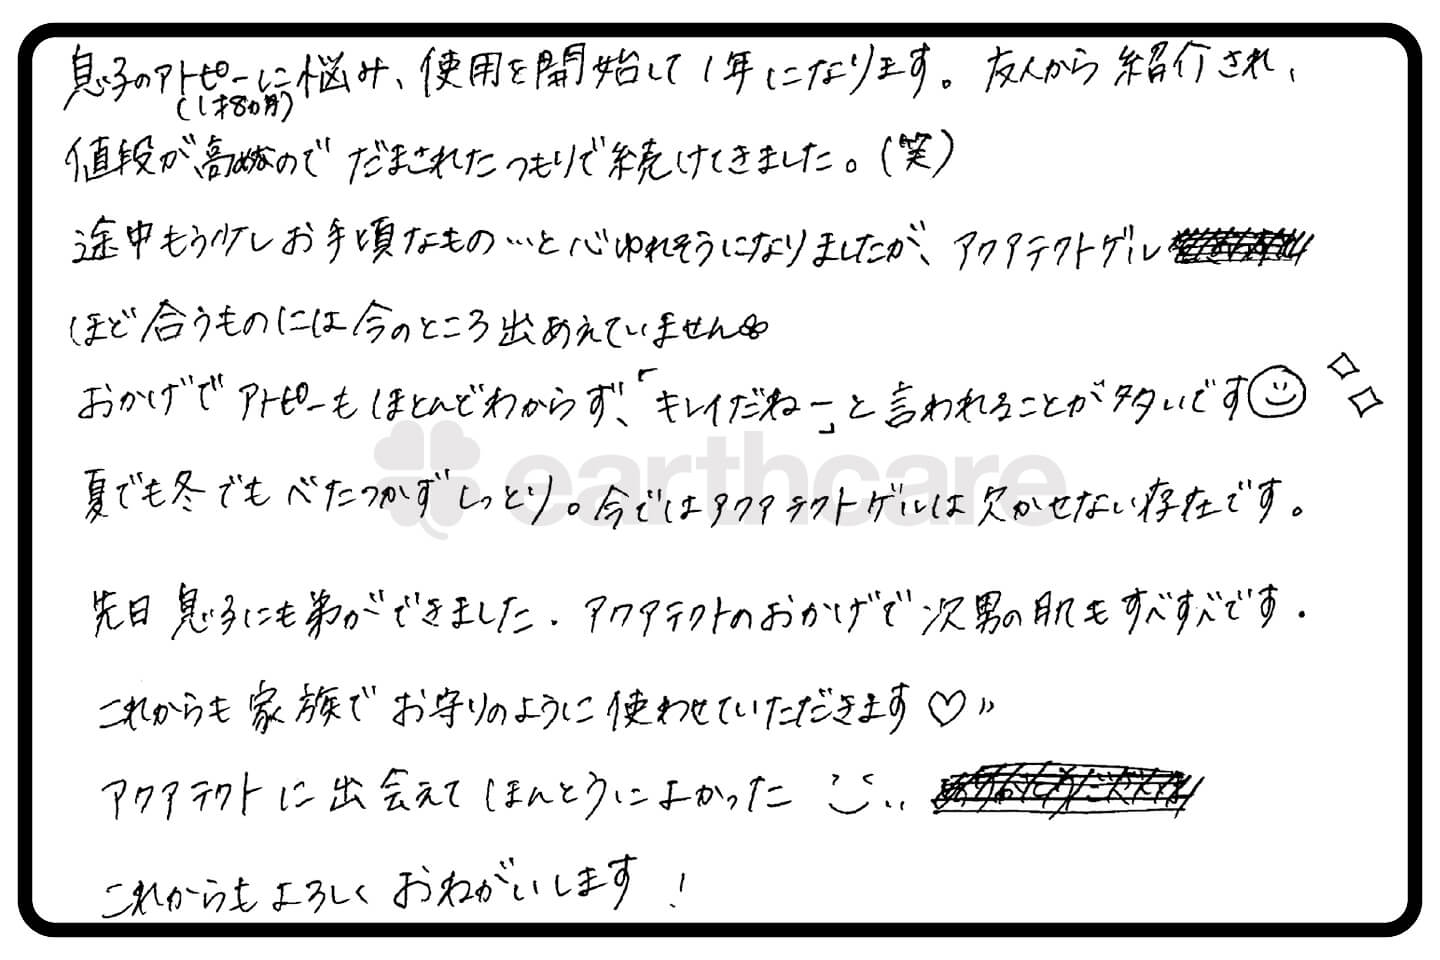 息子のアトピーに悩み、使用を開始して1年になります。友人から紹介され、
(1才8カ月)
値段が高めなのでだまされたつもりで続けてきました。(笑)
途中もう少しお手頃なもの…と心ゆれそうになりましたが、アクアテクトゲル
ほど合うものには今のところ出あえていません。
おかげでアトピーもほとんどわからず、「キレイだねー」と言われることが多いです
earthcare
夏でも冬でもべたつかずしっとり。今ではアクアテクトゲルは欠かせない存在です。
先日息子にも弟ができました。アクアテクトのおかげで次男の肌もすべすべです。
これからも家族でお守りのように使わせていただきます♡〃
アクアテクトに出会えてほんとうによかった
これからもよろしくおねがいします!